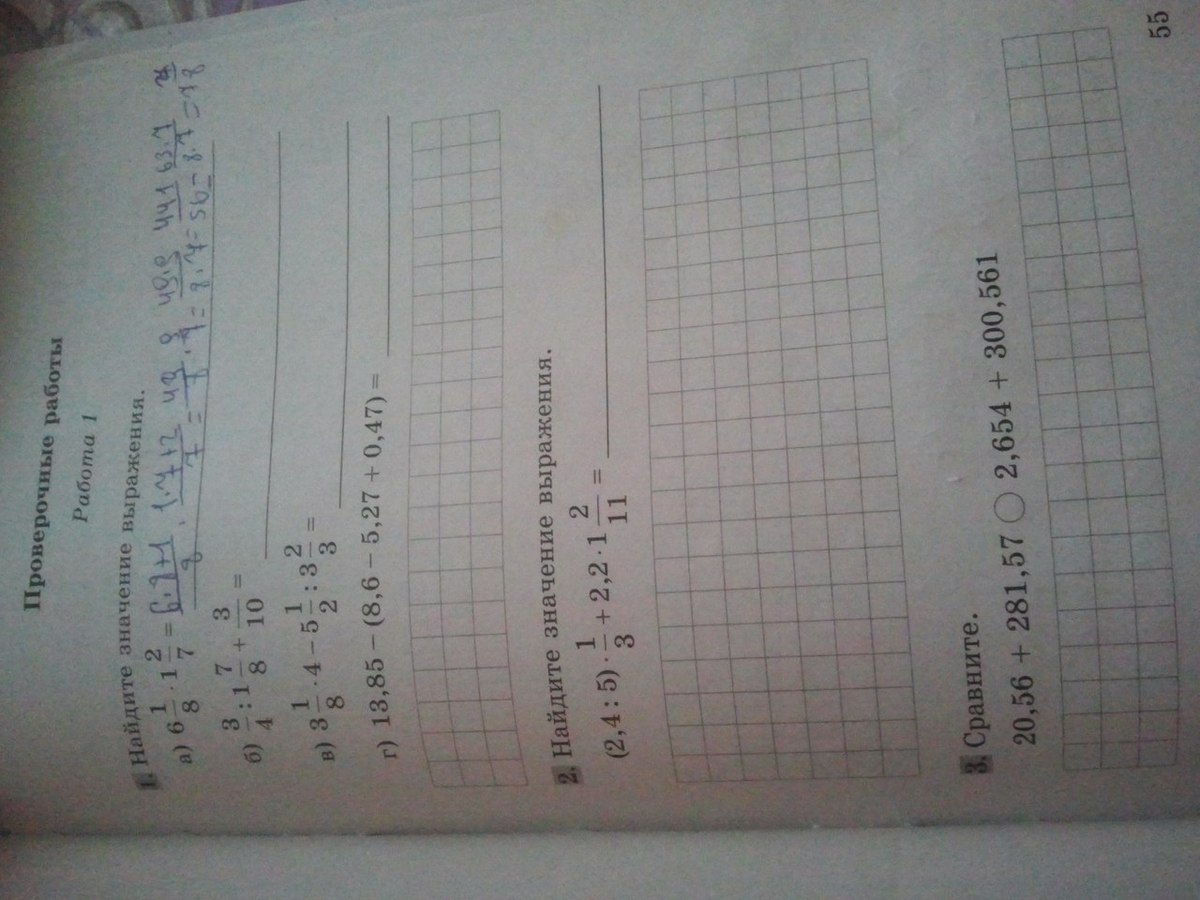 Проверочные работы
Работа 1
1. Найдите значение выражения.
а) 6 1/8 · 1 2/7 = (6·8+1)/8 · (1·7+2)/7 = 49/8 · 9/7 = 49·9/8·7 = 441/56 = 63·7/8·7 =
б) 3/4 : 1 7/8 + 3/10 =
в) 3 1/8 · 4 − 5 1/2 : 3 2/3 =
г) 13,85 − (8,6 − 5,27 + 0,47) =
2. Найдите значение выражения.
(2,4 : 5) · 1/3 + 2,2 · 1 2/11 =
3. Сравните.
20,56 + 281,57 ○ 2,654 + 300,561
55